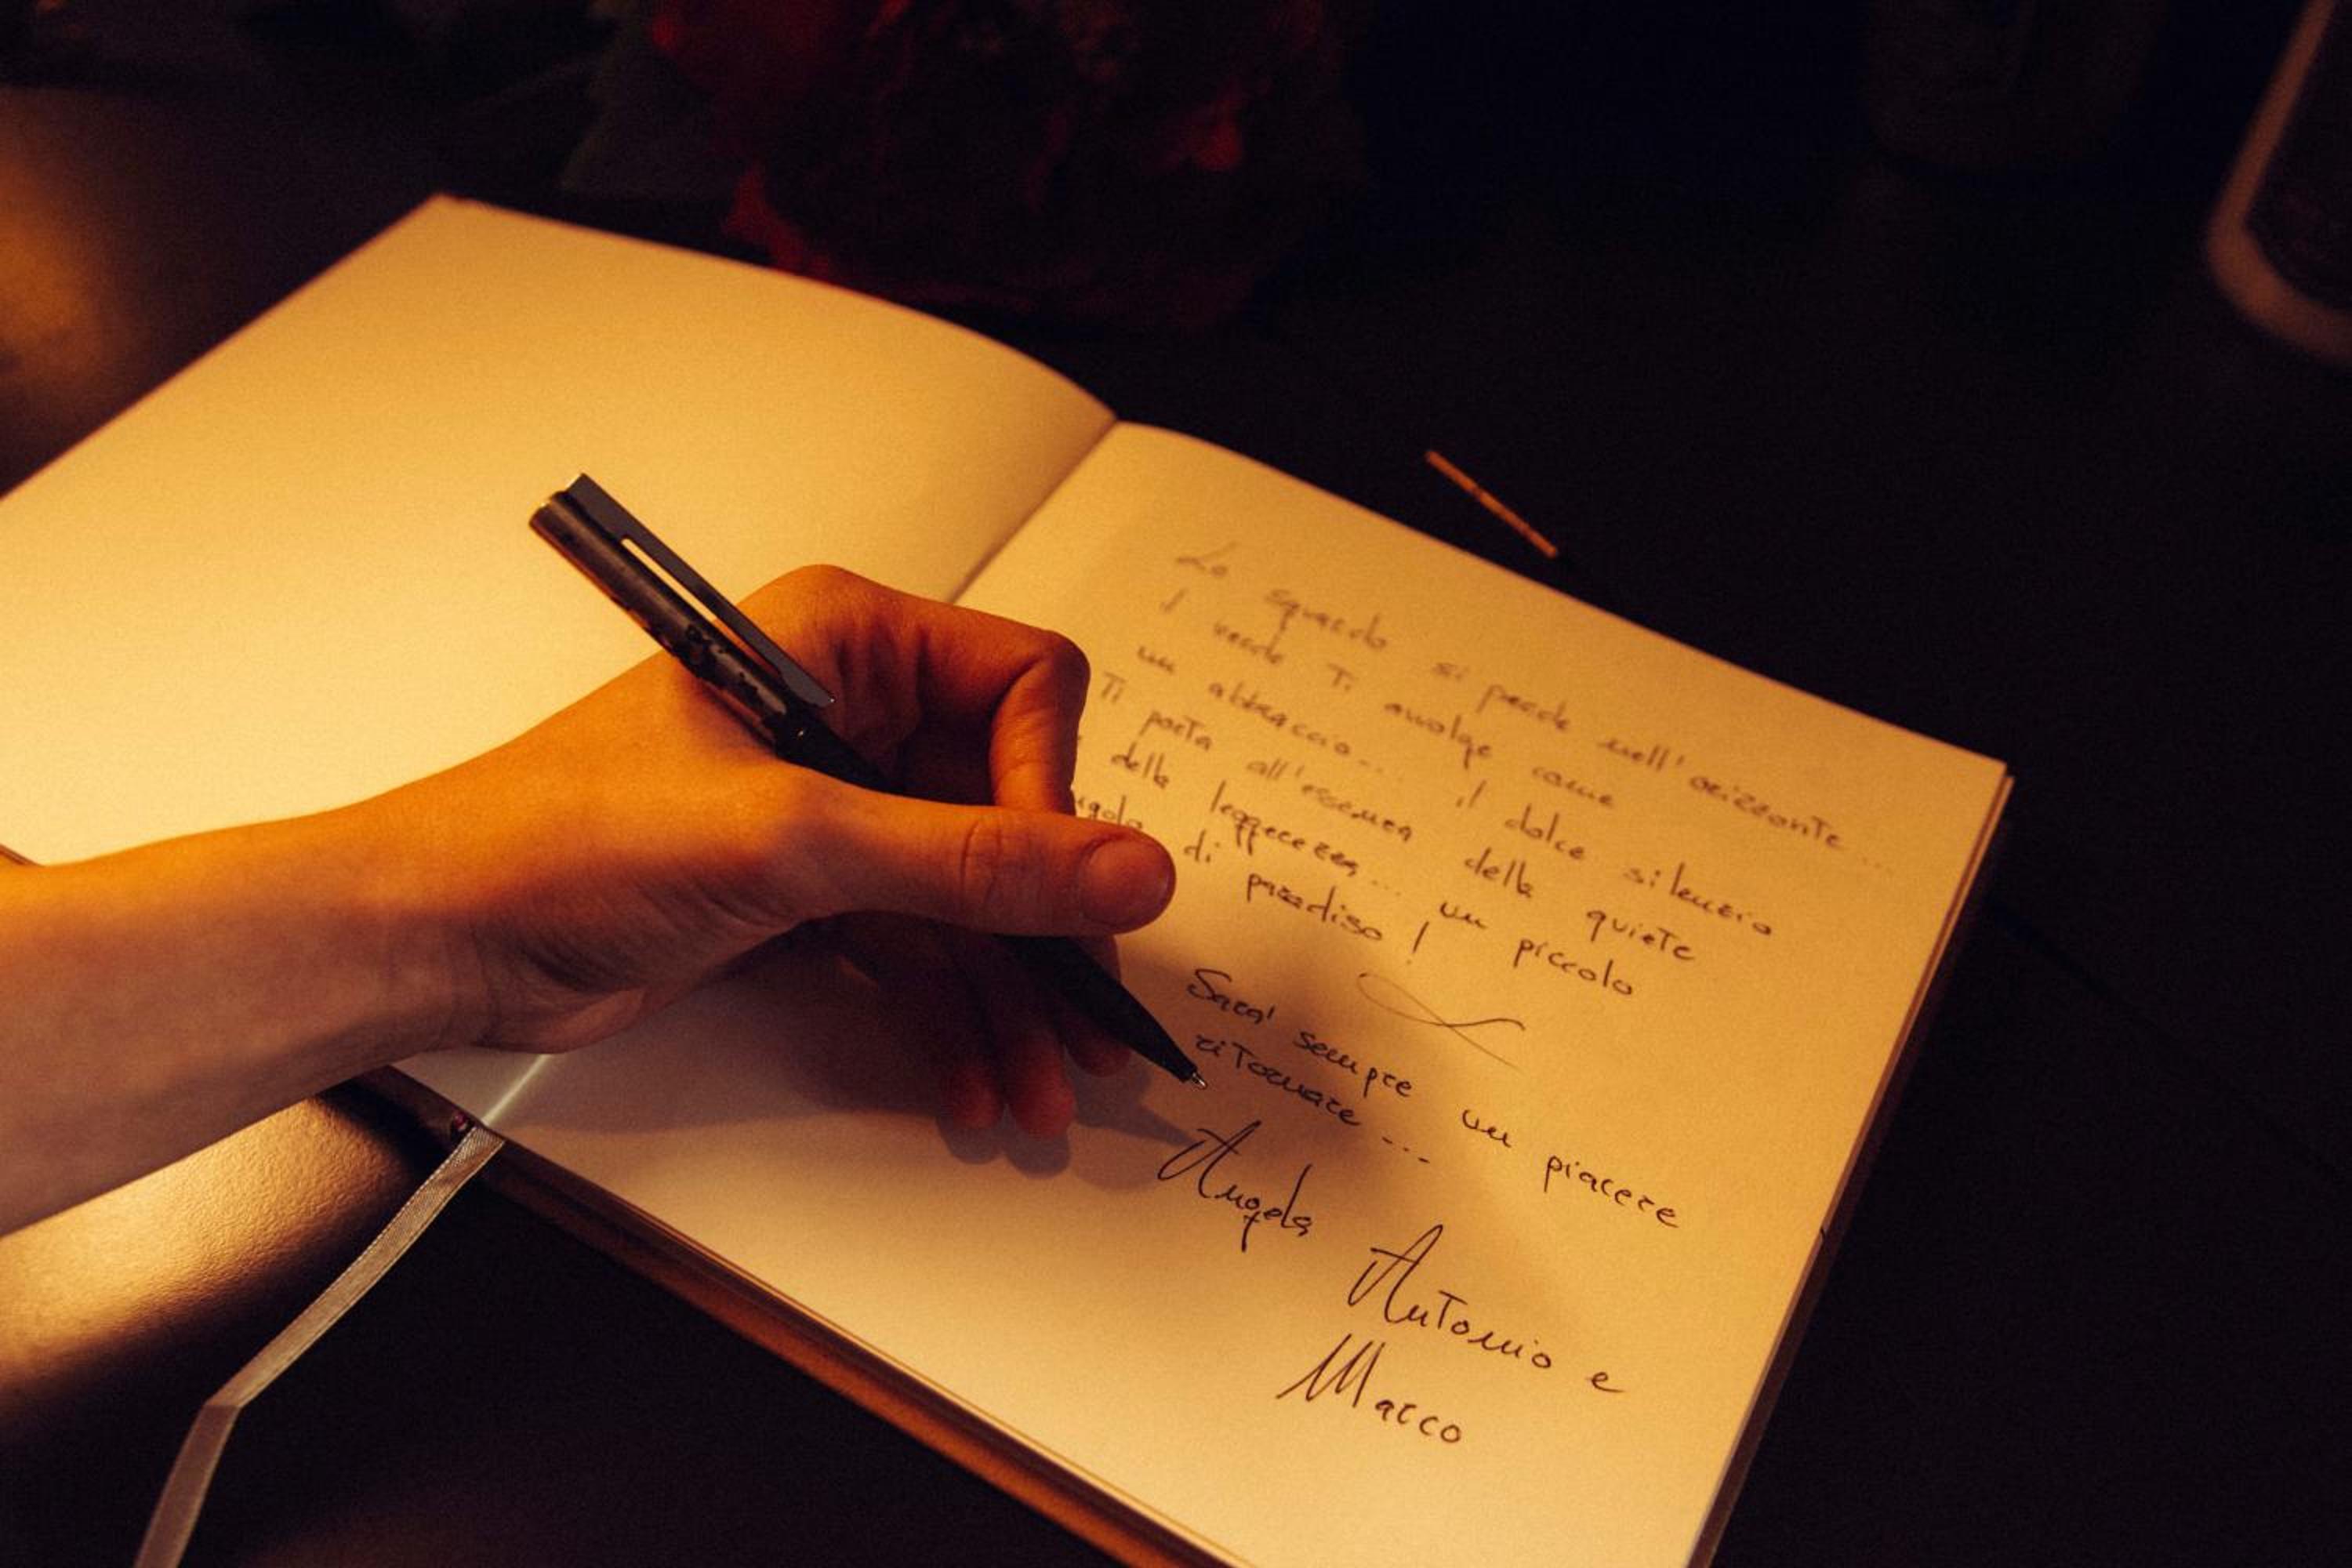 Lo sguardo si perde nell'orizzonte...
il verde Ti avvolge come
un abbraccio... il dolce silenzio
Ti porta all'essenza della quiete
della leggerezza... un piccolo
di paradiso!
Sara' sempre un piacere
ritornare...
Angela Antonio e
Marco